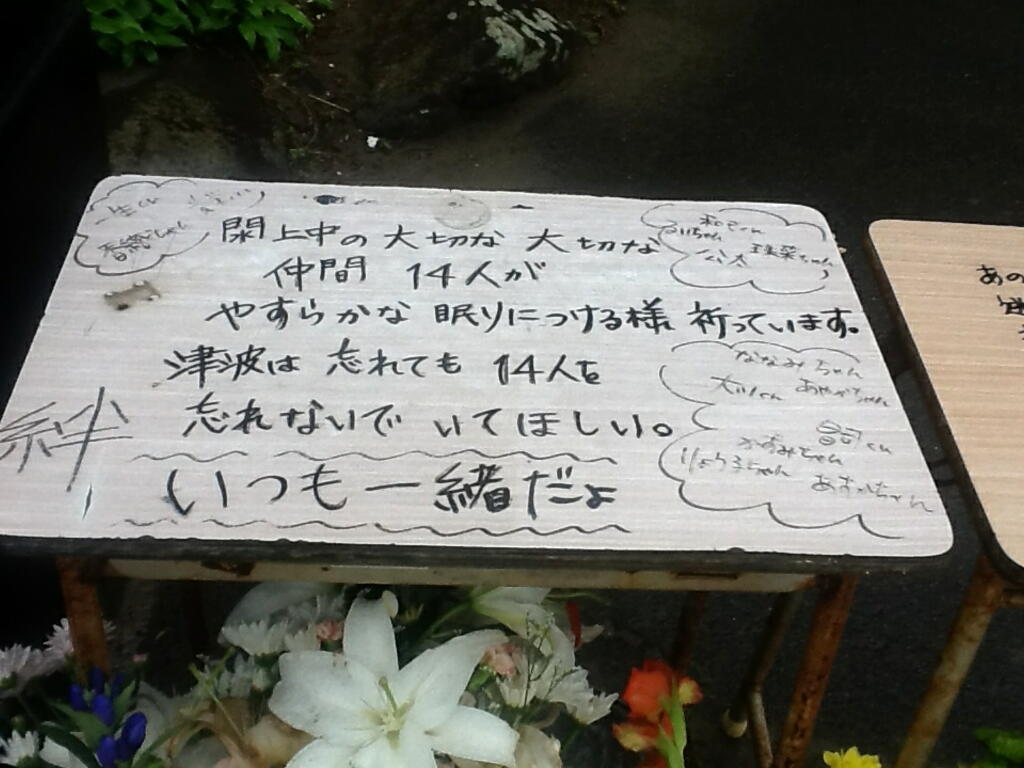 閖上中の大切な大切な
仲間 14人が
やすらかな 眠りにつける様 祈っています。
津波は 忘れても 14人を
忘れないで いてほしい。
いつも一緒だよ
絆
一生くん
香織ちゃん
和也くん
公太
ななみちゃん
あやかちゃん
かずみちゃん
りょう子ちゃん
あすかちゃん
あの